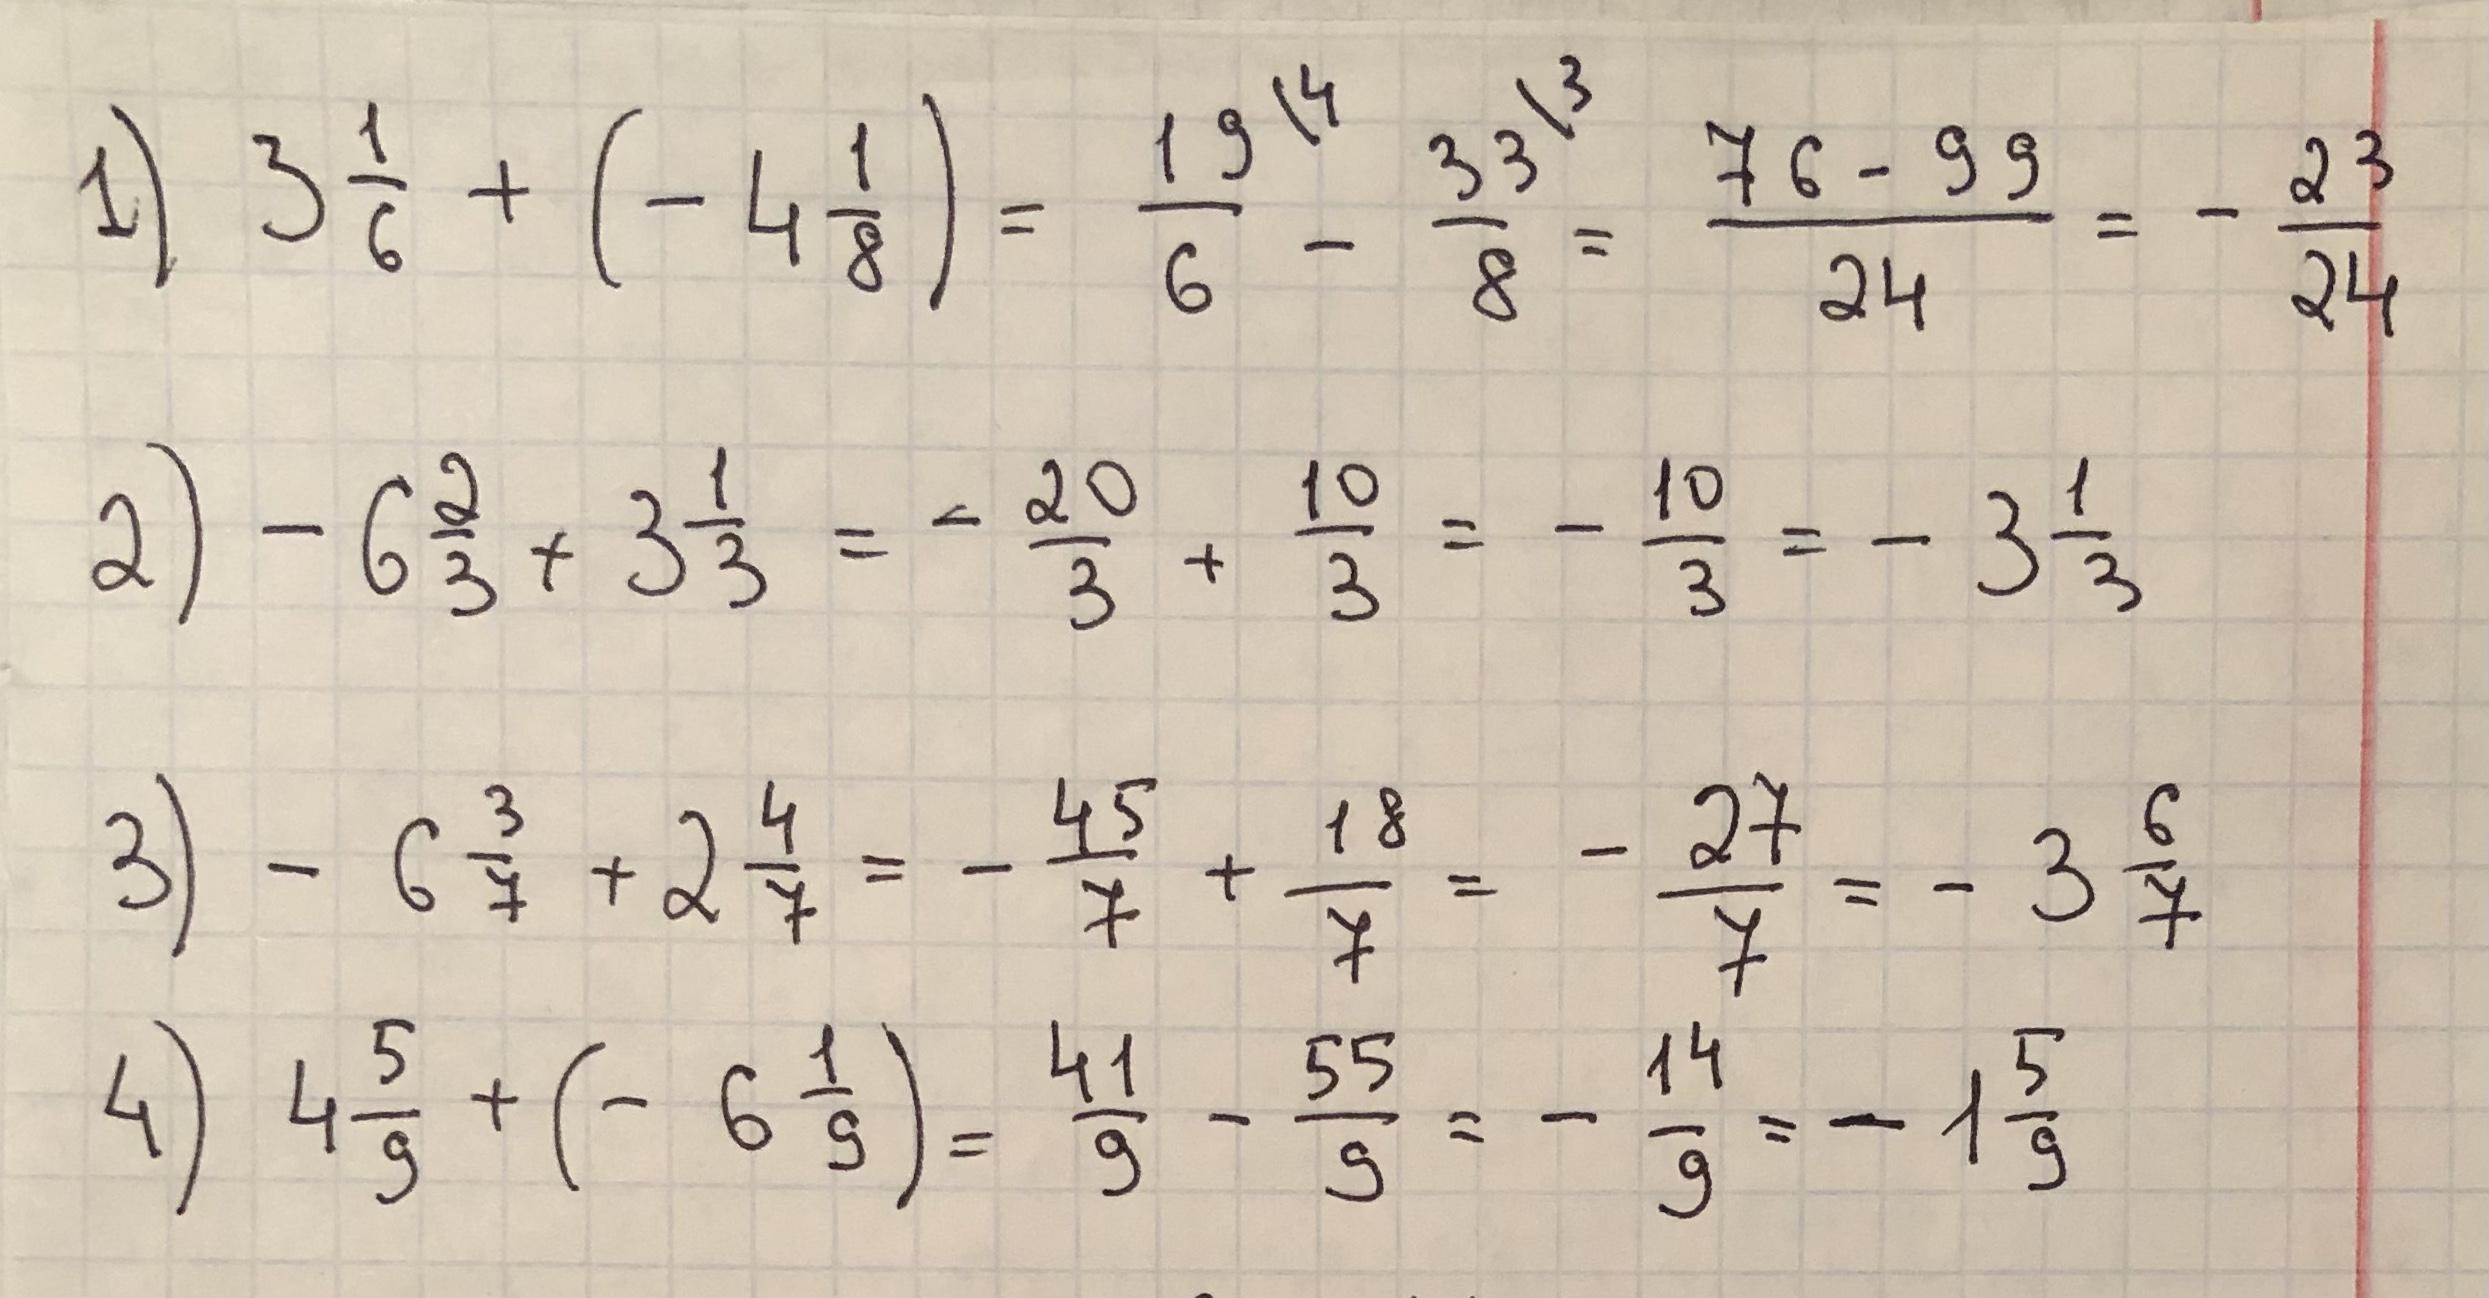 1) 3 1/6 + (- 4 1/8) = 19\4/6 - 33\3/8 = 76-99/24 = - 23/24
2) - 6 2/3 + 3 1/3 = - 20/3 + 10/3 = - 10/3 = - 3 1/3
3) - 6 3/7 + 2 4/7 = - 45/7 + 18/7 = - 27/7 = - 3 6/7
4) 4 5/9 + (- 6 1/9) = 41/9 - 55/9 = - 14/9 = - 1 5/9